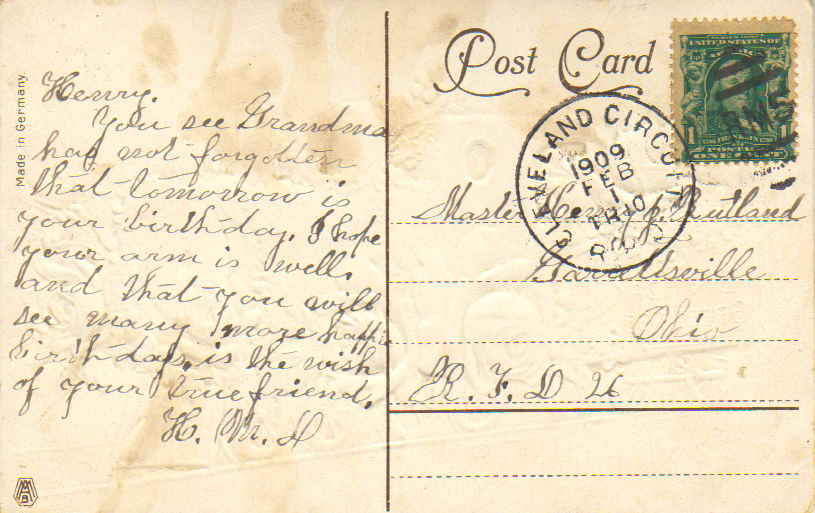 Made in Germany
Henry.
You see Grandma
had not forgotten
that tomorrow is
your birthday. I hope
your arm is well.
and that you will
see many more happie
birthdays. is the wish
of your true friend.
H. M. D
Post Card
CLEVELAND CIRCUIT
1909
FEB
1
R.P.O.
UNITED STATES OF
1 1
POSTAGE
ONE CENT
RMS
Master Henry Rutland
Garrettsville
Ohio
R. F. D 26